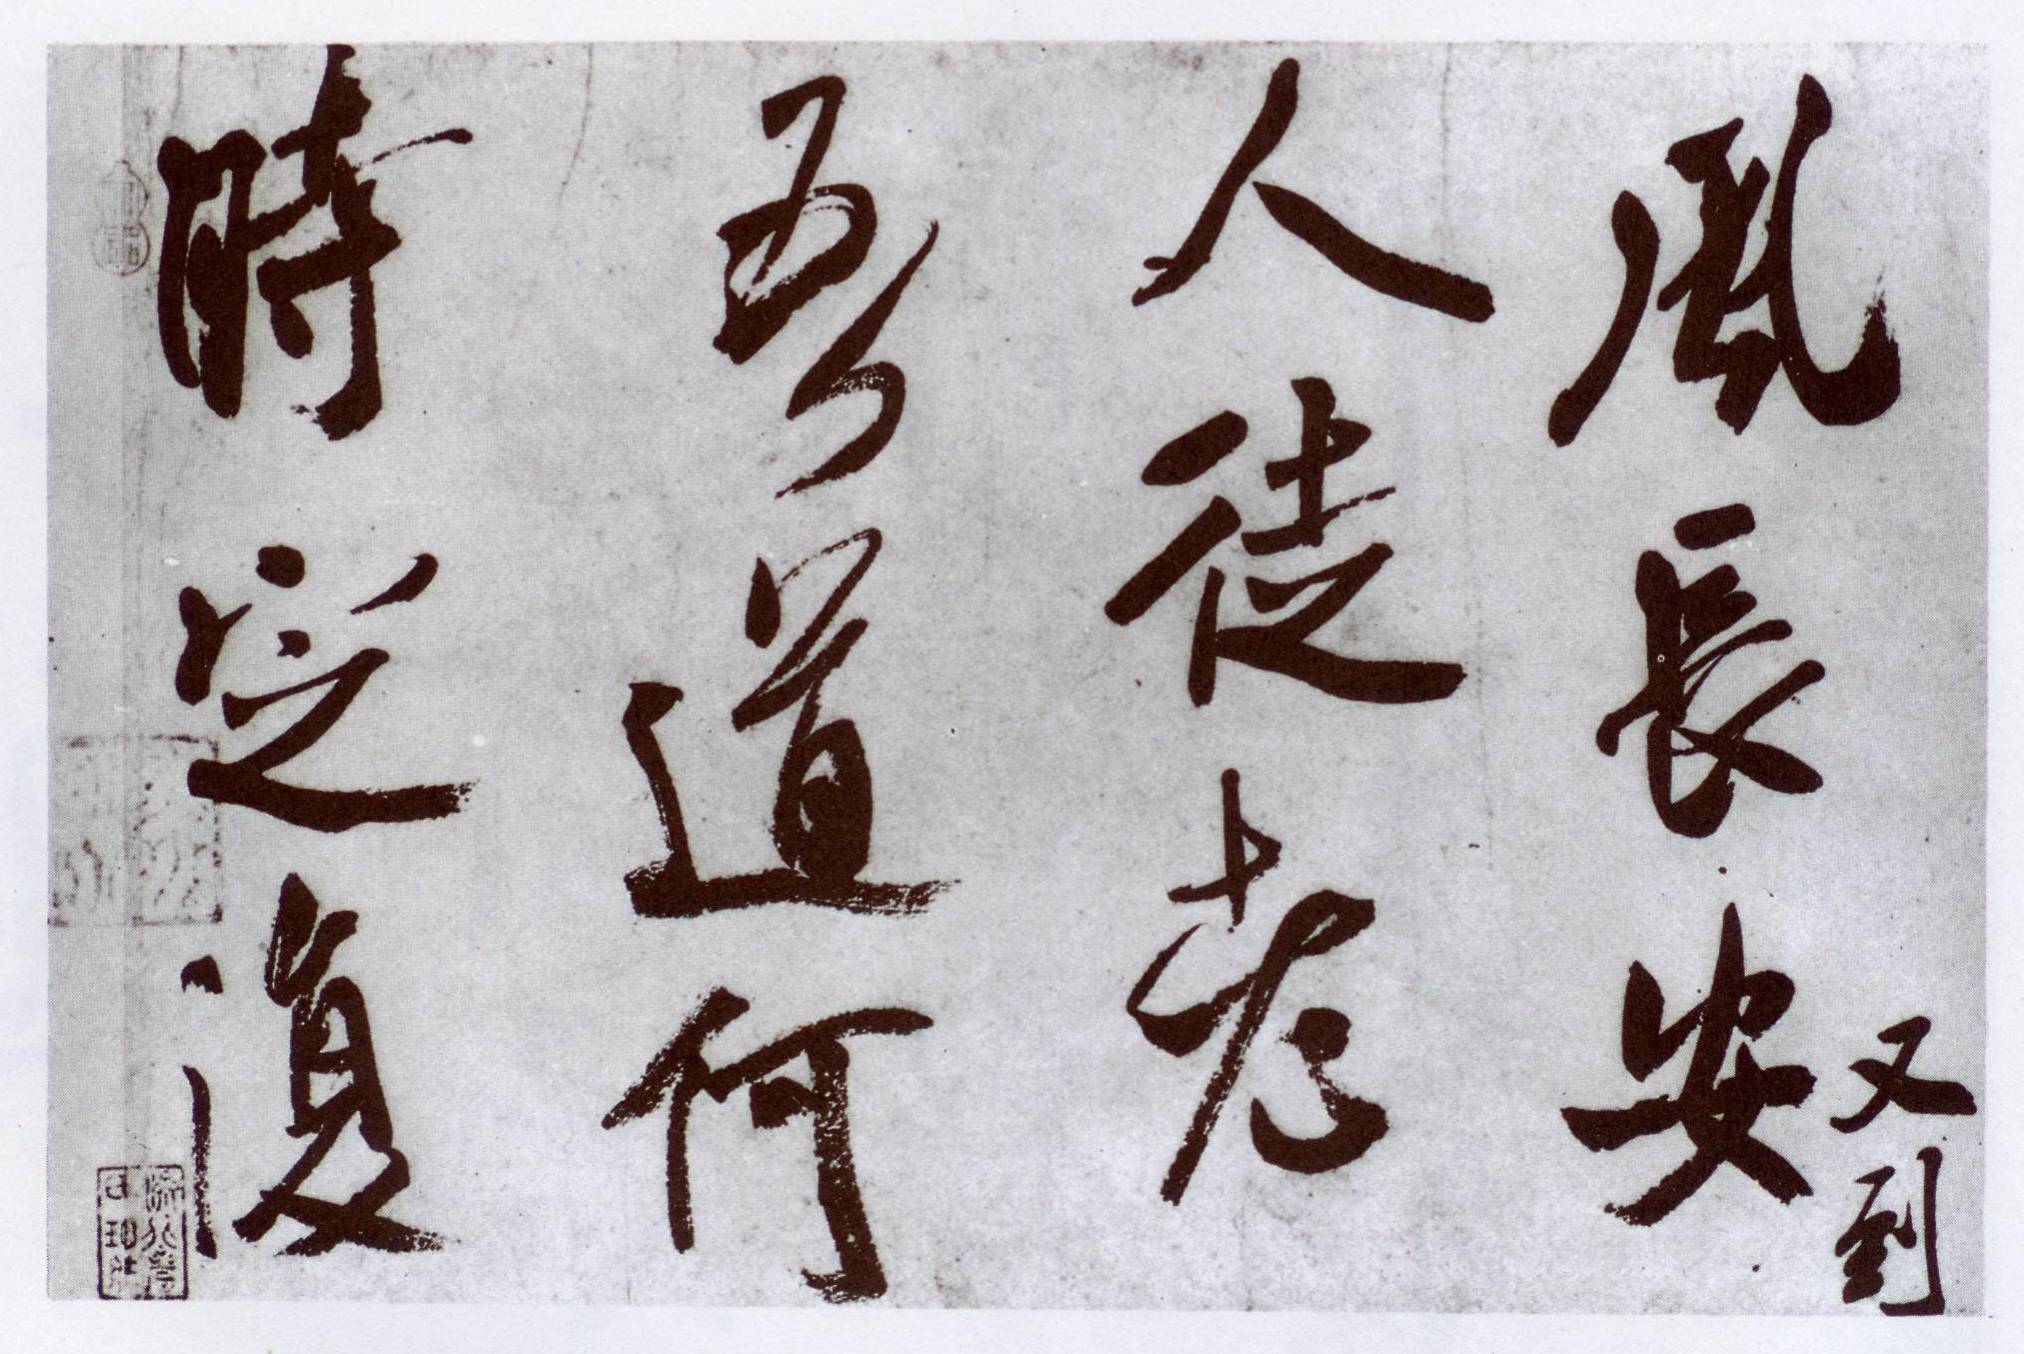 風長安又到
人徒老
吾道何
時定復